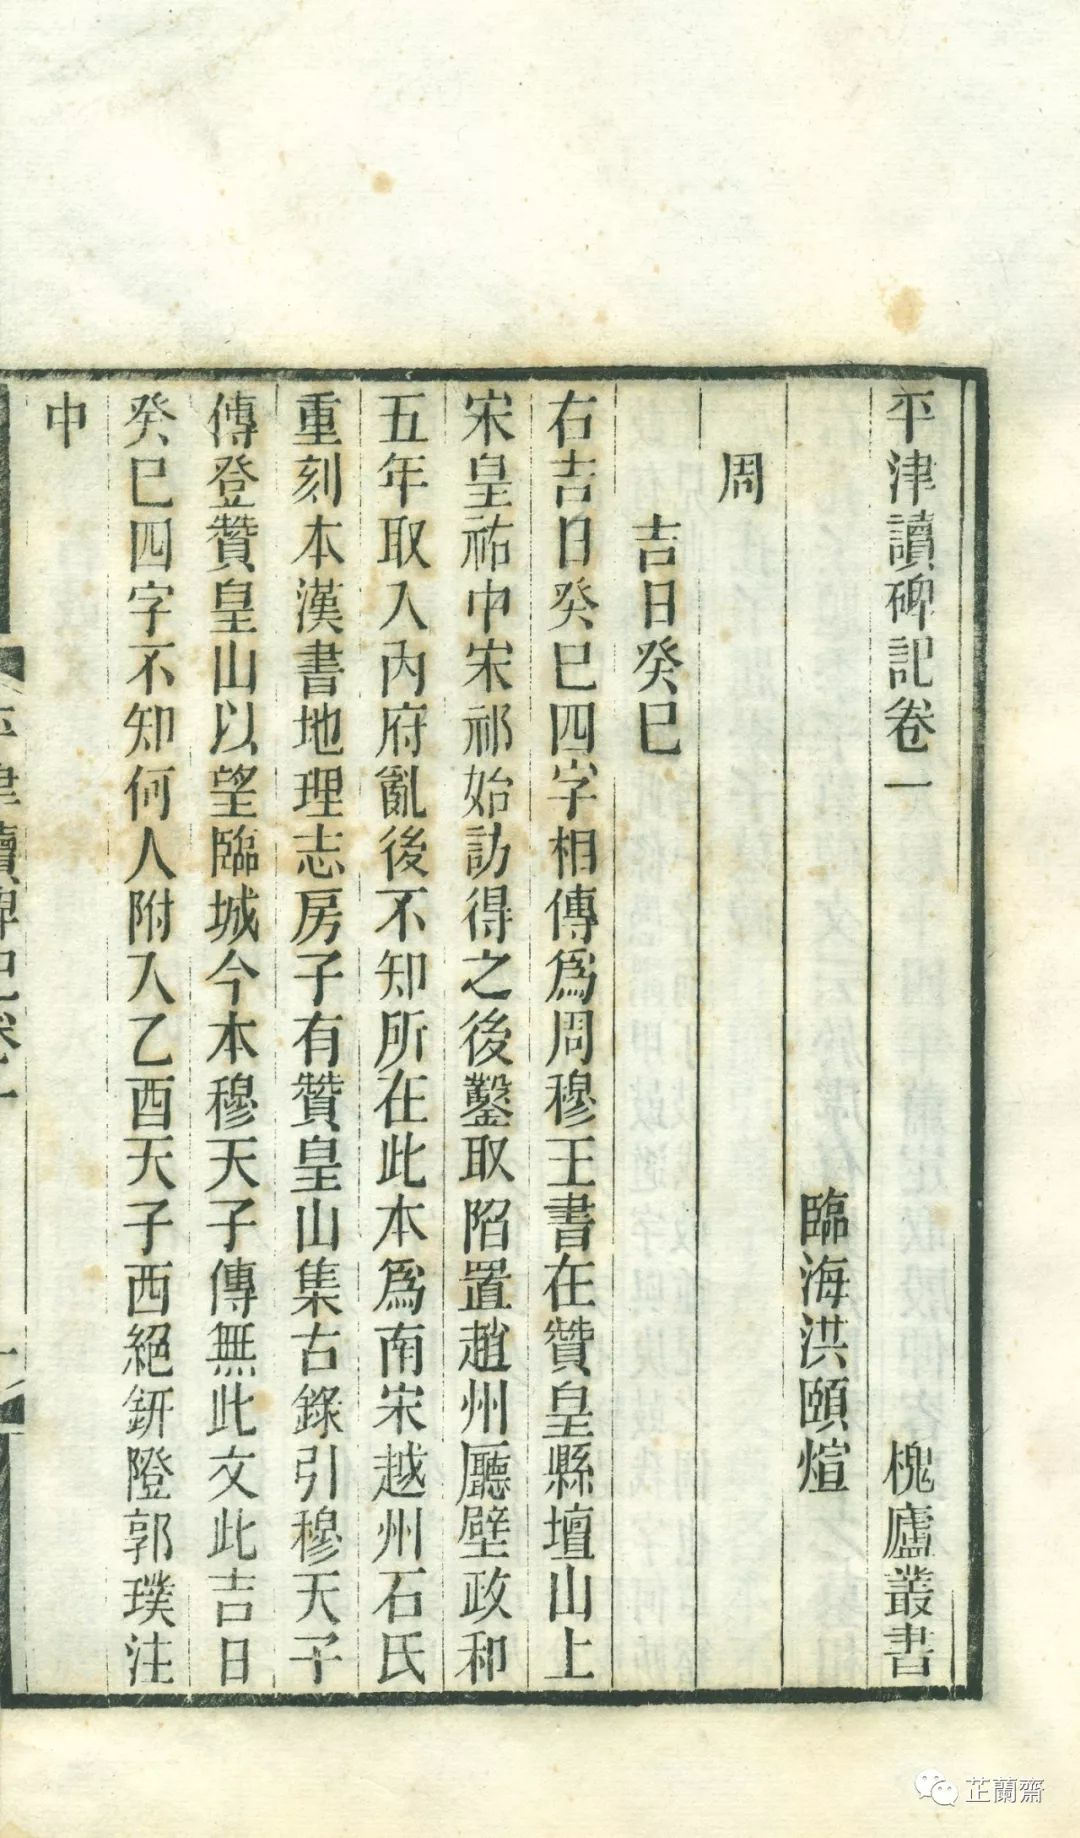 平津讀碑記卷一 槐廬叢書
臨海洪頤煊
周
吉日癸巳
右吉日癸巳四字相傳爲周穆王書在贊皇縣壇山上
宋皇祐中宋祁始訪得之後鑿取陷置趙州廳壁政和
五年取入內府亂後不知所在此本爲南宋越州石氏
重刻本漢書地理志房子有贊皇山集古錄引穆天子
傳登贊皇山以望臨城今本穆天子傳無此文此吉日
癸巳四字不知何人附入乙酉天子西絕鈃隥郭璞注
中
平津讀碑記卷一
一
芷蘭齋